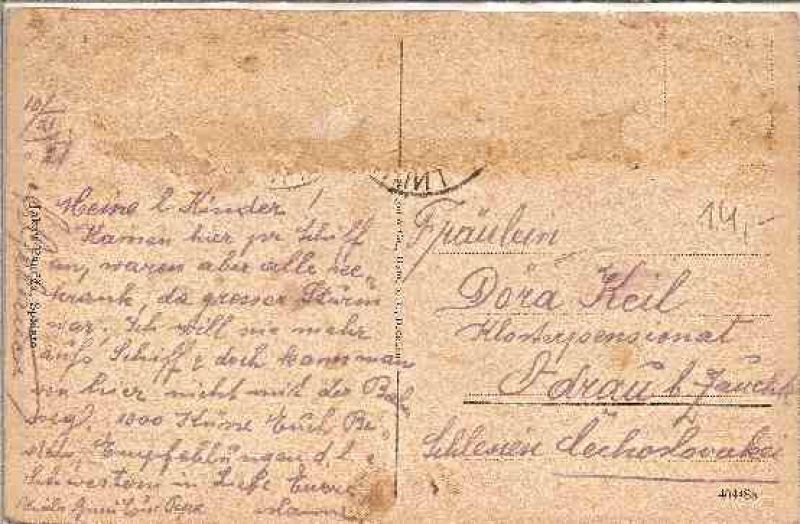 Meine l. Kinder!
Kamen hier pr Schiff
an, waren aber alle see-
krank, da grosser Sturm
war. Ich will nie mehr
aufs Schiff & doch kann man
von hier nicht mit der Bahn
weg. 1000 Küsse Euch Be-
sten, Empfehlungen d. l.
Schwestern in Liebe Eure
Mama
14,-
Fräulein
Dora Keil
Klosterpensionat
Odrau b. Zauchtl
Schlesien Čechoslovakei